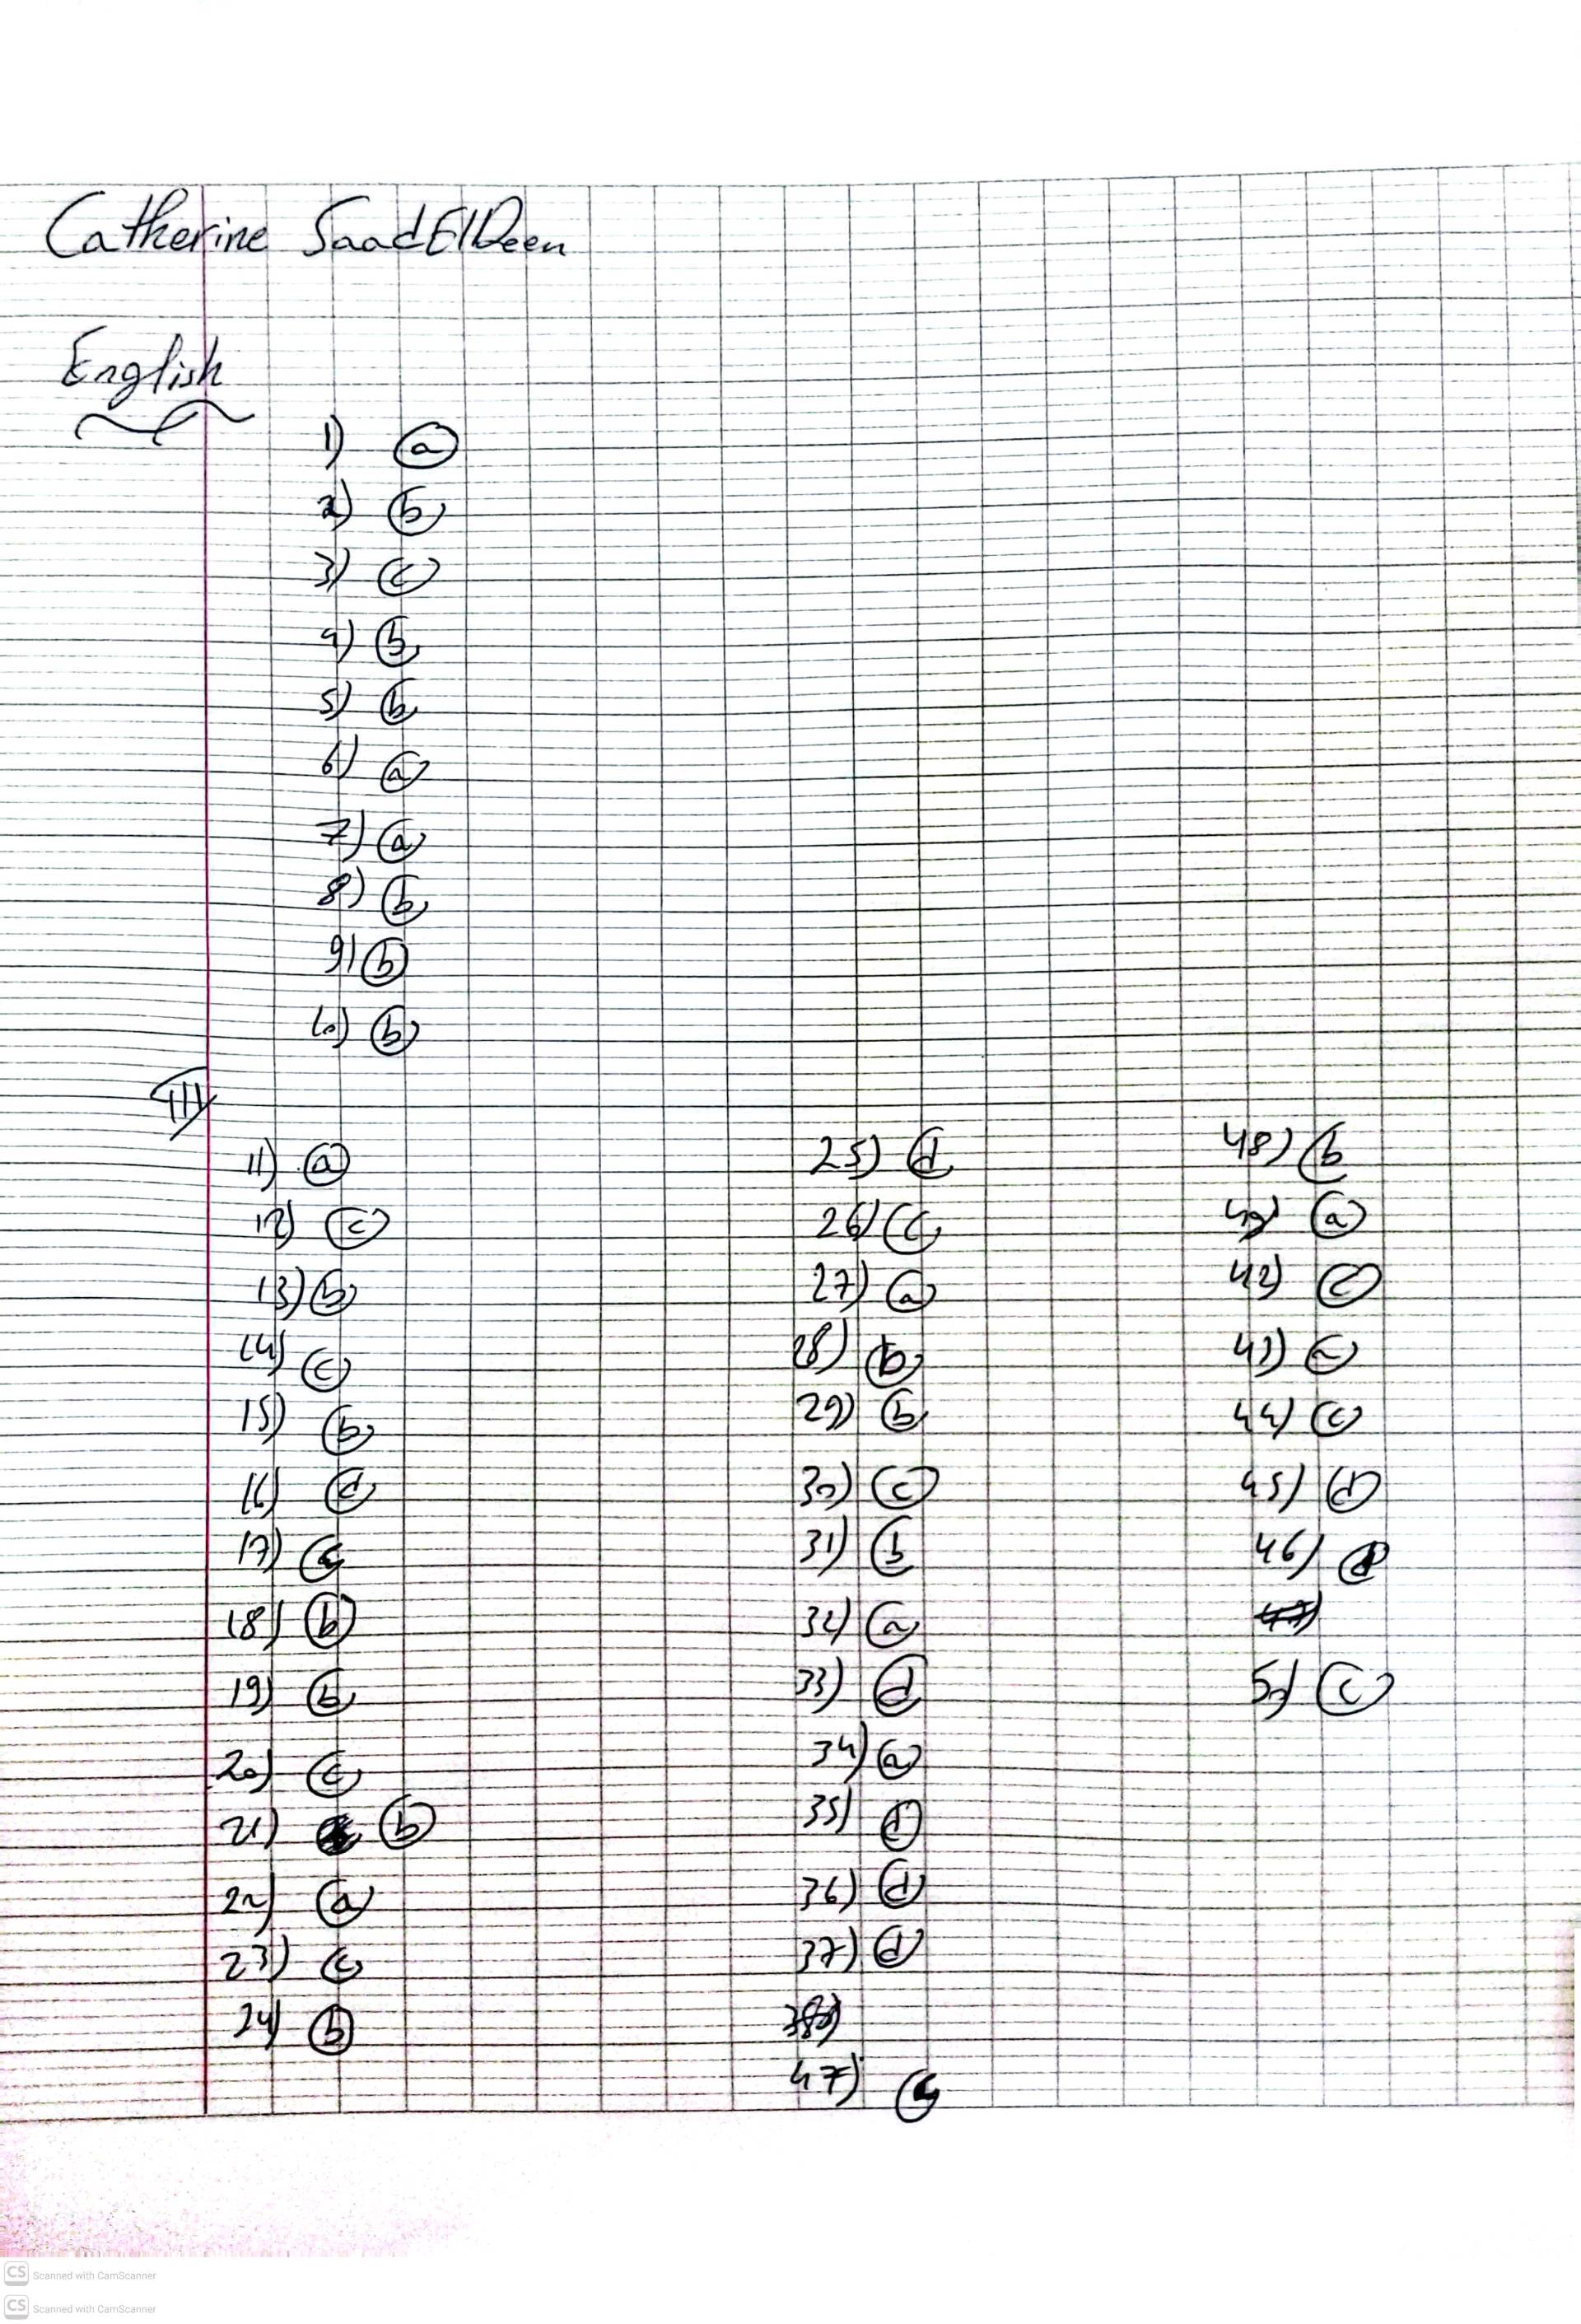 Catherine SaadElDeen
English
1) a
2) b
3) c
4) b
5) b
6) a
7) a
8) b
9) b
10) b
III
11) a
12) c
13) b
14) c
15) b
16) d
17) c
18) b
19) b
20) c
21) b
22) a
23) c
24) b
25) d
26) c
27) a
28) b
29) b
30) c
31) b
32) a
33) d
34) a
35) d
36) d
37) d
47) c
48) b
49) a
42) c
43)
44) c
45) d
46) d
50) c
CS Scanned with CamScanner
CS Scanned with CamScanner